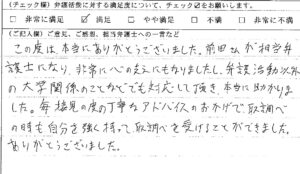 (チェック欄) 弁護活動に対する満足度について、チェック☑をお願いします。
□ 非常に満足 ☑ 満足 □ やや満足 □ 不満 □ 非常に不満
(ご記入欄) ご意見、ご感想、担当弁護士への一言など
この度は、本当にありがとうございました。前田さんが担当弁
護士になり、非常に心の支えにもなりましたし、弁護活動以外
の大学関係のことなどでも対応して頂き、本当に助かりま
した。毎接見の度の丁寧なアドバイスのおかげで、取調べ
の時も自分を強く持って、取調べを受けることができました。
ありがとうございました。